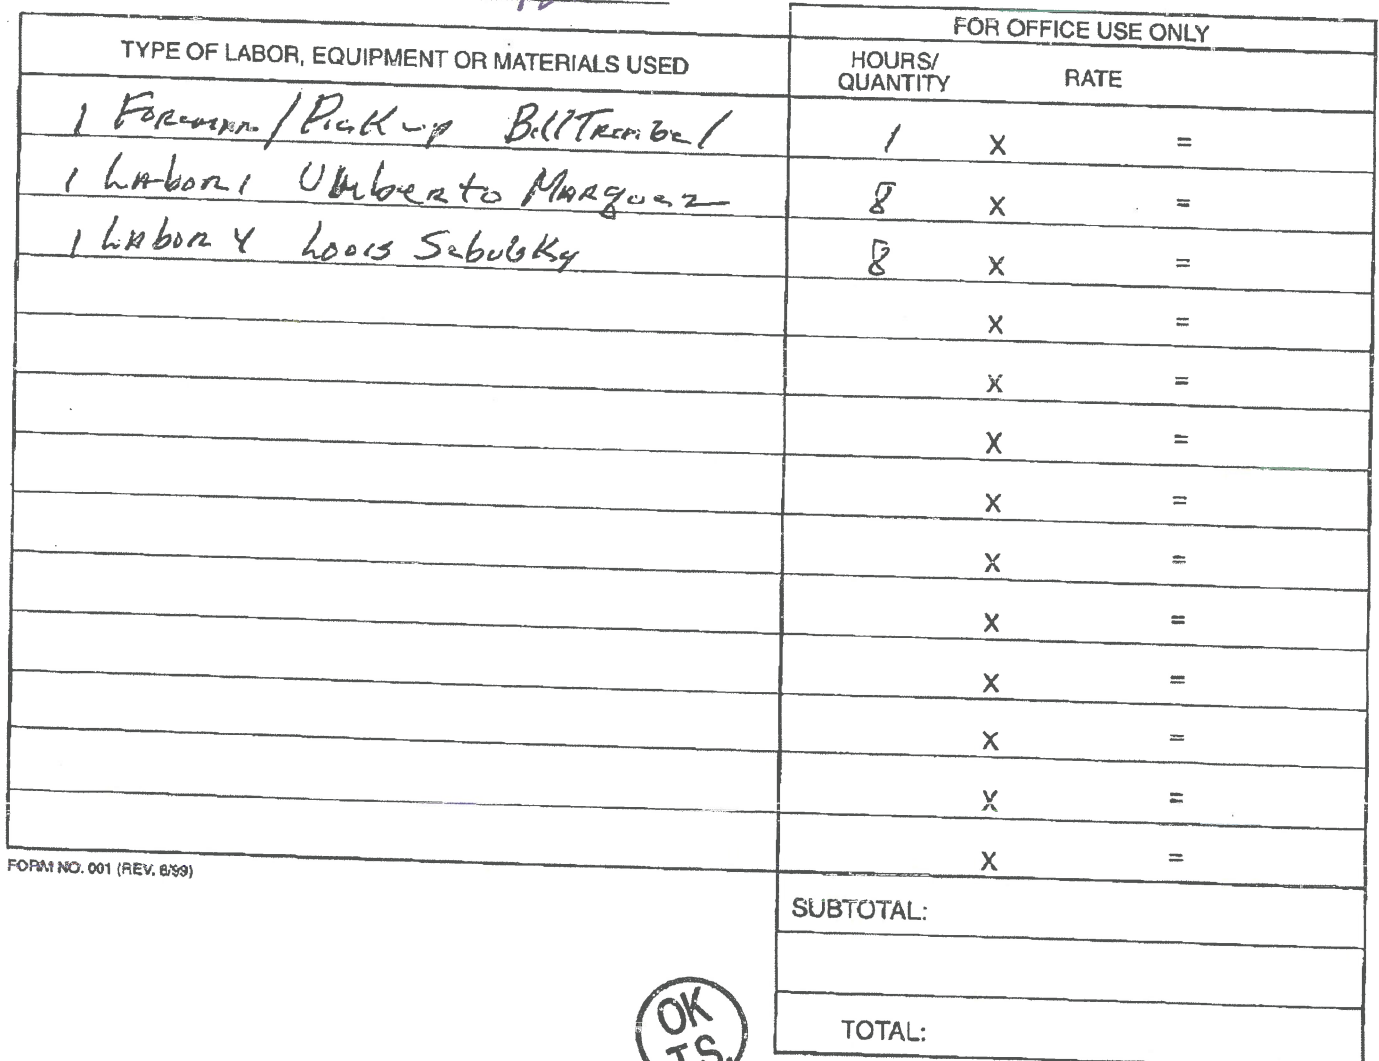 FOR OFFICE USE ONLY
TYPE OF LABOR, EQUIPMENT OR MATERIALS USED HOURS/ QUANTITY RATE
1 Foreman / Pick-up Bill 1 X =
1 Labor 1 Umberto Marquez 8 X =
1 Labor 4 Louis 8 X =
X =
X =
X =
X =
X =
X =
X =
X =
X =
X =
FORM NO. 001 (REV. 8/99)
SUBTOTAL:
OK
T.S.
TOTAL: